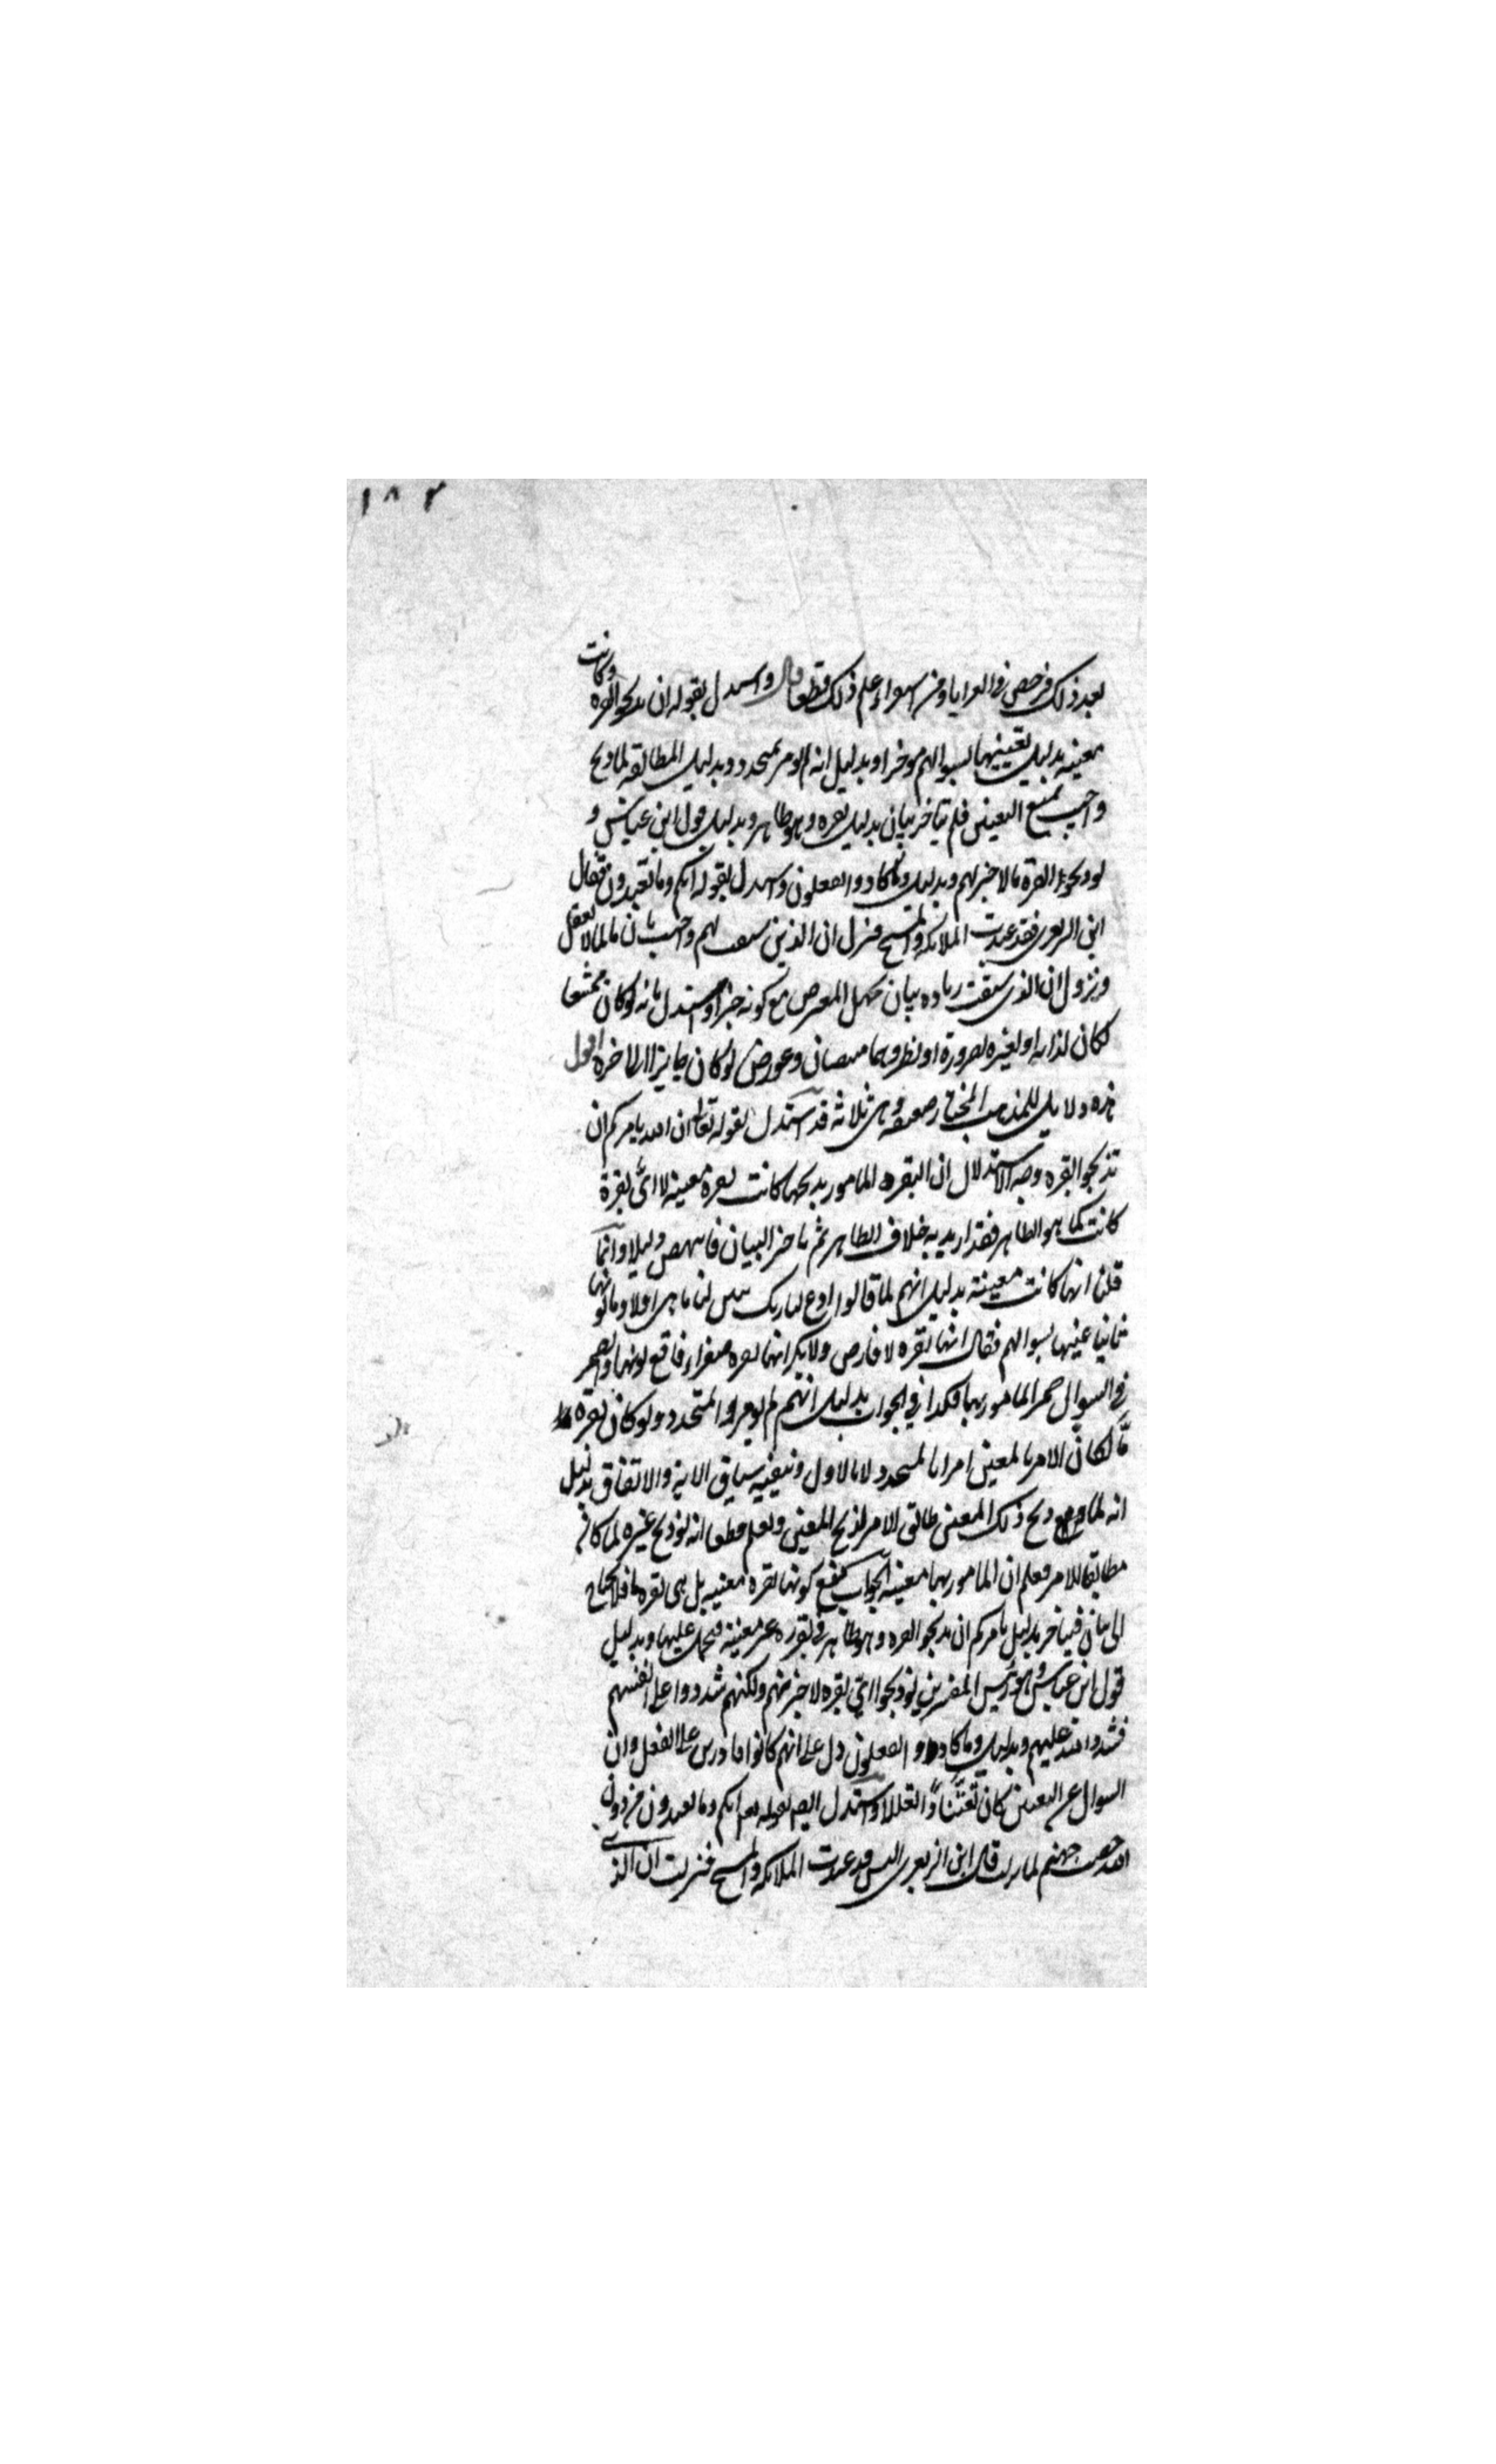 ١٨٣
بعد ذلك فرخص في العرايا ومن استقراء علم ذلك قطعا قال واستدل بقوله ان تذبحوا بقرة وكانت
معينة بدليل تعيينها بسوالهم موخرا وبدليل انه لم يومر بمتجدد وبدليل المطابقة لما ذبح
واجيب بمنع التعيين فلم يتاخر بيان بدليل بقرة وهو ظاهر وبدليل قول ابن عباس و
لو ذبحوا بقرة ما لاجزاتهم وبدليل وما كادوا يفعلون واستدل بقوله انكم وما تعبدون فقال
ابن الزبعرى فقد عبدت الملائكة والمسيح فنزل ان الذين سبقت لهم واجيب بان ما لما لا يعقل
ونزول ان الذين سبقت زيادة بيان لجهل المعترض مع كونه خبرا واستدل بانه لو كان ممتنعا
لكان لذاته او لغيره بضرورة او نظر وهما منتفيان وعورض لو كان جايزا الى اخره اقول
هذه دلايل للمذهب المختار ضعيفة وهي ثلاثة قد استدل بقوله تعالى ان الله يامركم ان
تذبحوا بقرة وجه الاستدلال ان البقرة المامور بذبحها كانت بقرة معينة لا اي بقرة
كانت كما هو الظاهر فقد اريد به خلاف الظاهر ثم تاخر البيان فانتهض دليلا وانما
قلنا انها كانت معينة بدليل انهم لما قالوا ادع لنا ربك يبين لنا ما هي اولا وما لونها
ثانيا عينها بسوالهم فقال انها بقرة لا فارض ولا بكر انها بقرة صفراء فاقع لونها والضمير
في السوال ضمير المامور بها فكذا في الجواب بدليل انهم لم يومروا بمتجدد ولو كان بقرة
ما لكان الامر بالمعين امرا بالمتجدد لا بالاول وينفيه سياق الاية والاتفاق بدليل
انه لما وقع ذبح ذلك المعين طابق الامر بذبح المعين ويعلم قطعا انه لو ذبح غيره لما كان
مطابقا للامر فعلم ان المامور بها معينة الجواب بمنع كونها بقرة معينة بل هي بقرة ما فلا تحتاج
الى بيان فيتاخر بدليل يامركم ان تذبحوا بقرة وهو ظاهر في بقرة غير معينة فيحمل عليها وبدليل
قول ابن عباس وهو رئيس المفسرين لو ذبحوا اي بقرة لاجزاتهم ولكنهم شددوا على انفسهم
فشدد الله عليهم وبدليل وما كادوا يفعلون دل على انهم كانوا قادرين على الفعل وان
السوال عن التعيين كان تعنتا وتعللا واستدل ايضا بقوله تعالى انكم وما تعبدون من دون
الله حصب جهنم لما نزلت قال ابن الزبعرى اليس قد عبدت الملائكة والمسيح فنزلت ان الذي